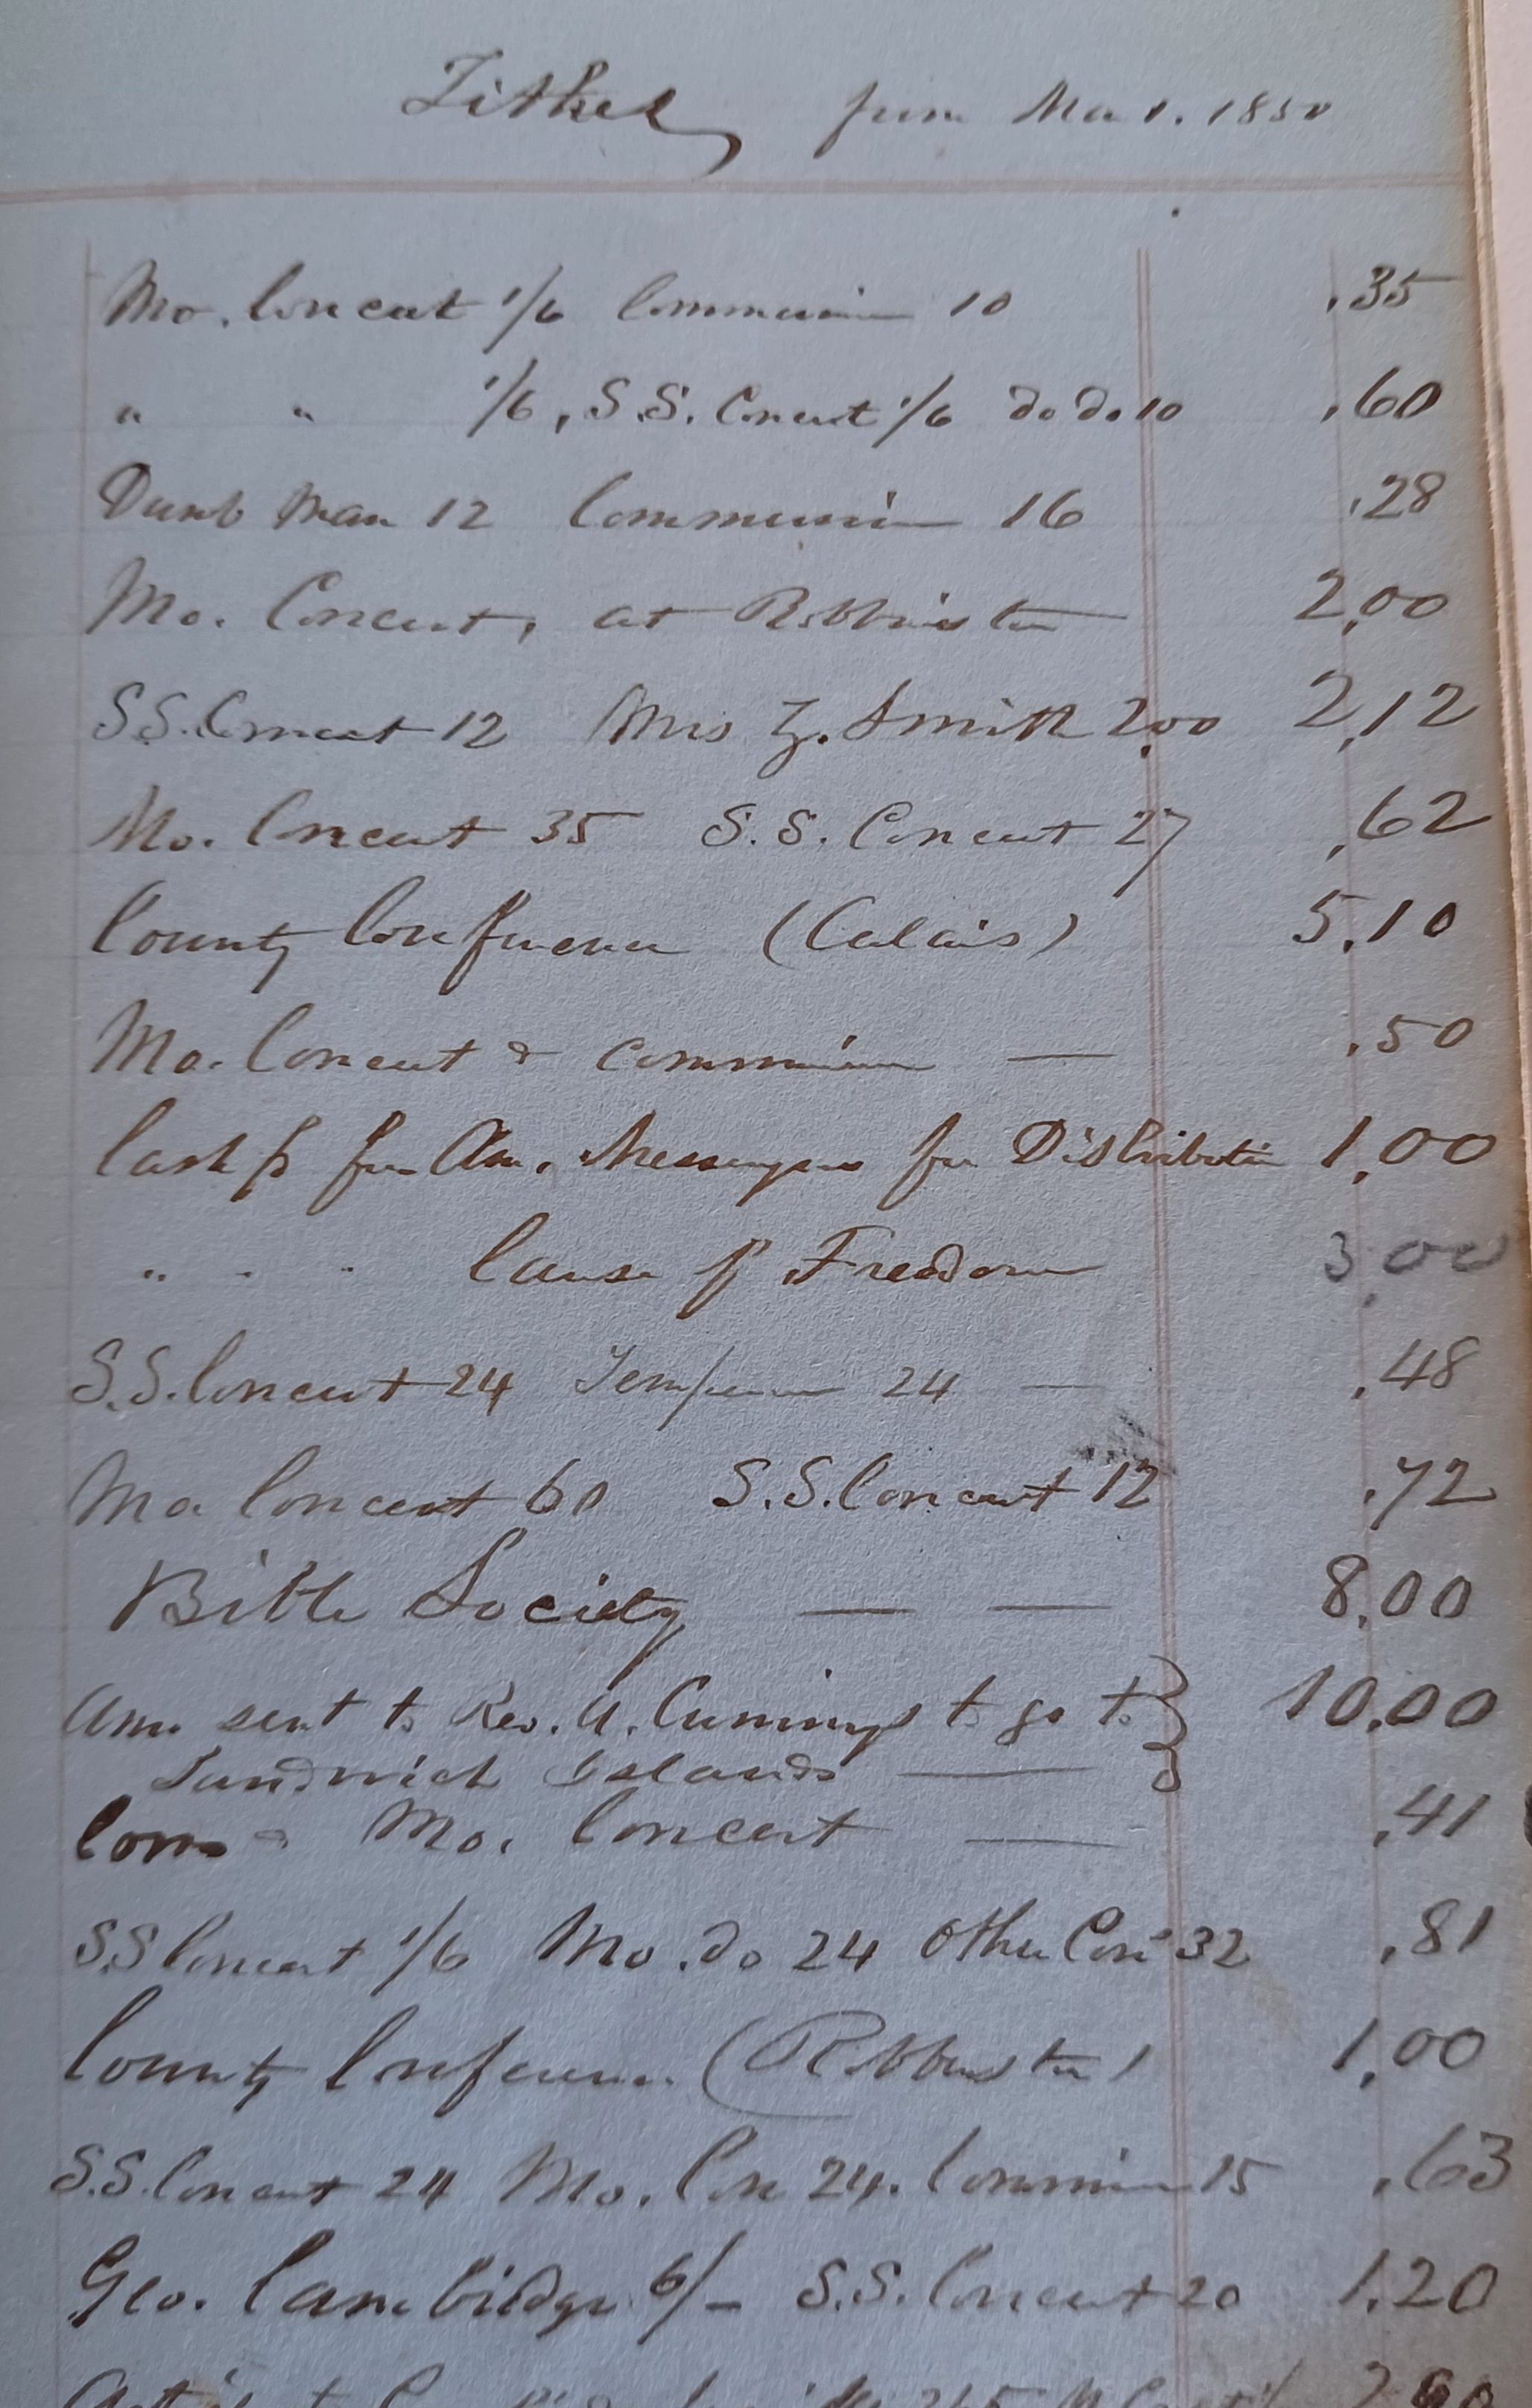 Tithes from Mar 1. 1850
Mo. Concert 1/6 Communion 10 .35
" " 1/6, S.S. Concert 1/6 do do 10 .60
Dumb Man 12 Communion 16 .28
Mo. Concert, at Robbinston 2,00
S.S. Concert 12 Mrs Z. Smith 2,00 2,12
Mo. Concert 35 S.S. Concert 27 ,62
County Conference (Calais) 5,10
Mo. Concert & Communion — .50
Cash pd for Am. Messengers for Distribution 1,00
" " " Cause of Freedom 3,00
S.S. Concert 24 Temperance 24 — .48
Mo Concert 60 S.S. Concert 12 .72
Bible Society — — 8,00
Am. sent to Rev. A. Cummings to go to 10,00
Sandwich Islands —
Com & Mo. Concert — .41
S.S Concert 1/6 Mo. do 24 Other Con 32 .81
County Conference (Robbinston) 1,00
S.S. Concert 24 Mo. Con 24. Communion 15 .63
Geo. Cambridge 6/- S.S. Concert 20 1.20